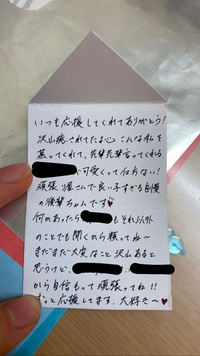 いつも応援してくれてありがとう!
沢山癒されてたよ♡ こんな私を
慕ってくれて、先輩先輩言ってくれる
可愛くって仕方ない!
頑張り屋さんで良い子すぎる自慢
の後輩ちゃんです♥
何かあったら もそれ以外
のことでも聞くから頼ってね〜
まだまだ大変なこと沢山あると
思うけど、
から自信もって頑張ってね!!
ずっと応援してます、大好き〜♥